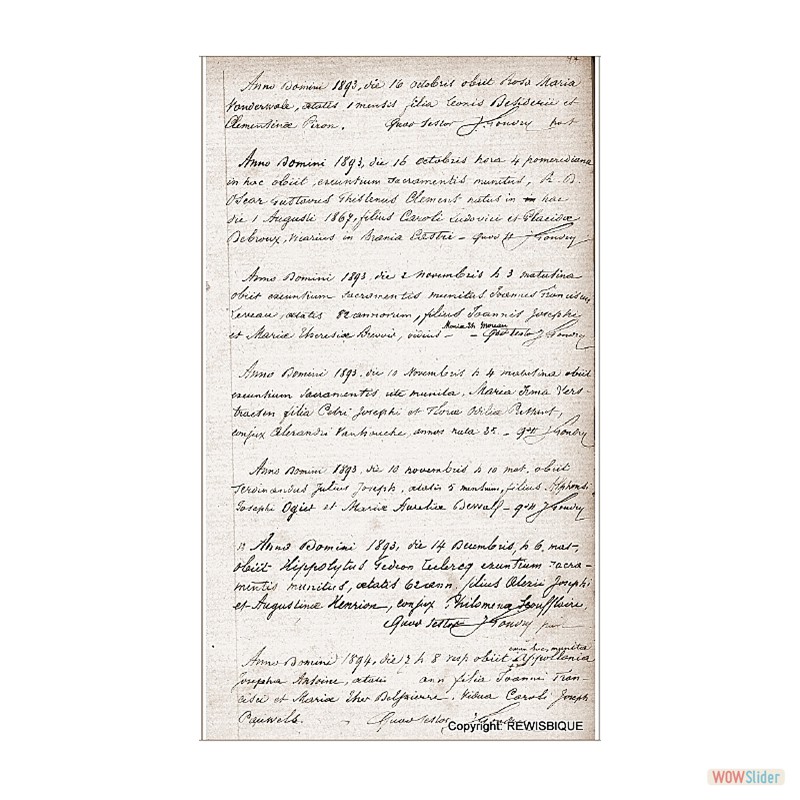 Anno Domini 1893, die 16 octobris obiit Rosa Maria
Vanderwale, aetatis 1 mensis filia Leonis Desiderii et
Clementinae Piron. Quod testor J. Gondry past
Anno Domini 1893, die 16 octobris hora 4 pomeridiana
in hac obiit, exeuntium sacramentis munitus, R. D.
Oscar Gustavus Ghislenus Clement natus in hac
die 1 Augusti 1867, filius Caroli Ludovici et Placidae
Debroux, Vicarius in Brania Castri - quod tt J Gondry
Anno Domini 1893 die 2 novembris h 3 matutina
obiit exeuntium sacramentis munitus Joannes Franciscus
aetatis 82 annorum, filius Joannis Josephi
et Mariae Theresiae viduus Maria Th. Moreau - Quod testor J Gondry
Anno Domini 1893. die 10 Novembris h 4 matutina obiit
exeuntium Sacramentis rite munita, Maria Irma Vers-
traeten filia Petri Josephi et Florae Odiliae
conjux Alexandri annos nata 35. - qd tt J Gondry
Anno Domini 1893, die 10 novembris h 10 mat. obiit
Ferdinandus Julius Joseph, aetatis 5 mensium, filius Alphonsi
Josephi Ogiez et Mariae Aureliae - qd tt J Gondry
Anno Domini 1893, die 14 Decembris, h 6. mat.
obiit Hippolytus Gedeon Leclercq exeuntium sacra-
mentis munitus, aetatis 62 ann. filius Alexii Josephi
et Augustinae Henrion, conjux Philomena Scoufflaire,
Quod testor J Gondry past
Anno Domini 1894, die 2 h 8 vesp. obiit munita Appollonia
Josepha Antoine, aetatis ann filia Joannis Fran-
cisci et Mariae Ther Vidua Caroli Joseph
Pauwels. - Quod testor J Gondry
Copyright: REWISBIQUE
WOWSlider